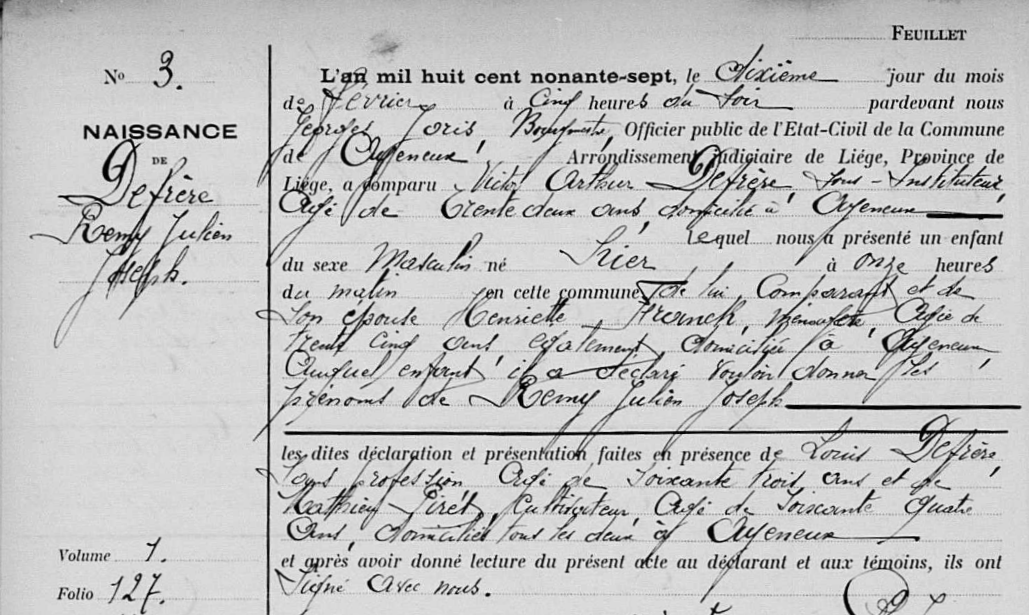 FEUILLET
No 3.
NAISSANCE
DE
Defrère
Remy Julien
Joseph.
L'an mil huit cent nonante-sept, le dixième jour du mois
de février à cinq heures du soir pardevant nous
Georges Joris, Bourgmestre, Officier public de l'Etat-Civil de la Commune
de Ayeneux, Arrondissement judiciaire de Liége, Province de
Liége, a comparu Victor Arthur Defrère sous-Instituteur
Agé de trente deux ans domicilié à Ayeneux
lequel nous a présenté un enfant
du sexe Masculin né hier, à onze heures
du matin en cette commune de lui Comparant et de
son épouse Henriette Franck, ménagère Agée de
trente cinq ans également domiciliée à Ayeneux
Auquel enfant il a déclaré vouloir donner les
prénoms de Remy Julien Joseph
les dites déclaration et présentation faites en présence de Louis Defrère,
sans profession Agé de soixante trois ans et de
Mathieu Piret, Cultivateur Agé de soixante quatre
Ans, domiciliés tous les deux à Ayeneux
et après avoir donné lecture du présent acte au déclarant et aux témoins, ils ont
Signé avec nous.
Volume 1.
Folio 127.